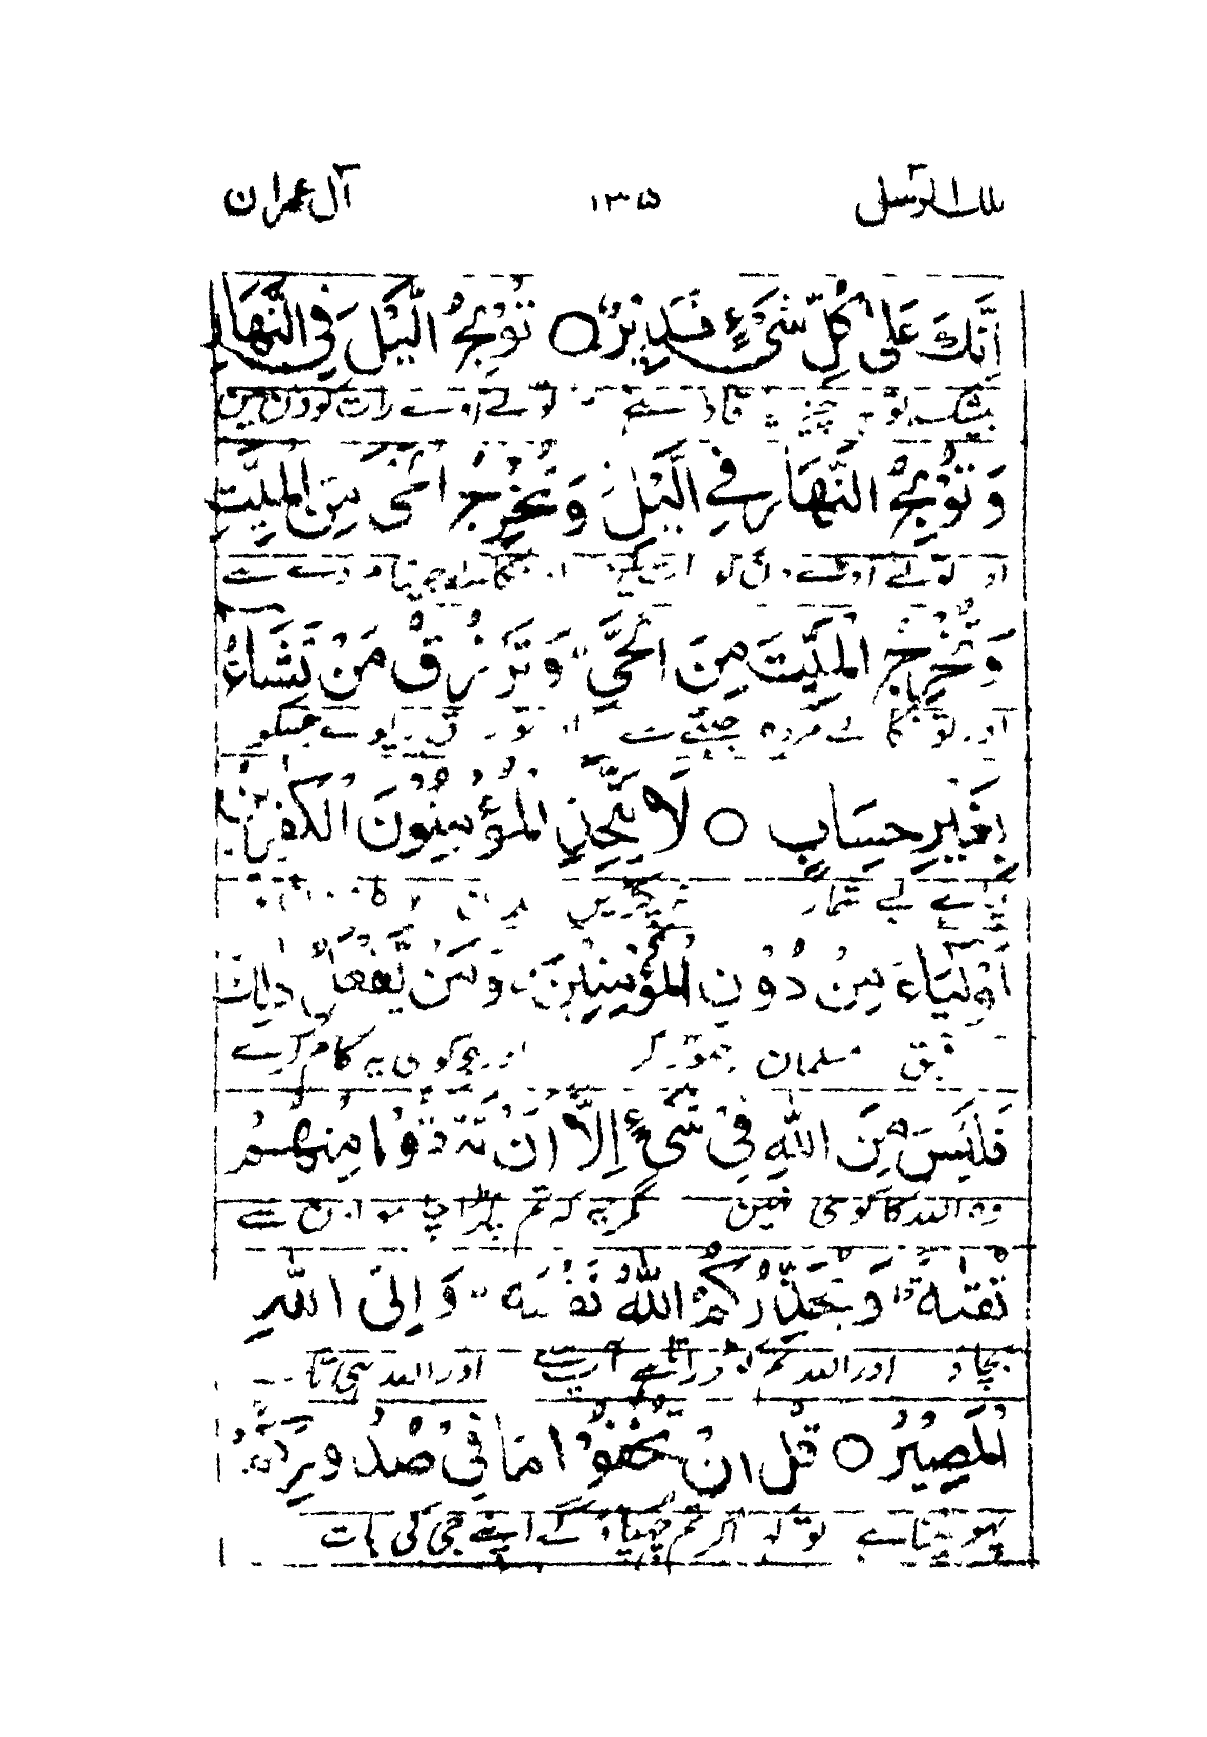 تلك الرسل ۱۳۵ آل عمران
اِنَّكَ عَلٰى كُلِّ شَىْءٍ قَدِيْرٌ ○ تُوْلِجُ الَّيْلَ فِى النَّهَارِ
بیشک تو چیز قادر ہے تو لے آوے رات کو دن میں
وَتُوْلِجُ النَّهَارَ فِى الَّيْلِ وَتُخْرِجُ الْحَىَّ مِنَ الْمَيِّتِ
اور تو لے آوے دن کو رات میں اور نکالے جیتا مردے سے
وَتُخْرِجُ الْمَيِّتَ مِنَ الْحَىِّ وَتَرْزُقُ مَنْ تَشَاءُ
اور تو نکالے مردہ جیتے سے اور تو رزق دیوے جسکو
بِغَيْرِ حِسَابٍ ○ لَا يَتَّخِذِ الْمُؤْمِنُوْنَ الْكٰفِرِيْنَ
چاہے بے شمار نہ پکڑیں
اَوْلِيَاءَ مِنْ دُوْنِ الْمُؤْمِنِيْنَ وَمَنْ يَّفْعَلْ ذٰلِكَ
رفیق مسلمان چھوڑ کر اور جو کوئی یہ کام کرے
فَلَيْسَ مِنَ اللّٰهِ فِىْ شَىْءٍ اِلَّا اَنْ تَتَّقُوْا مِنْهُمْ
وہ اللہ کا کوئی نہیں مگر یہ کہ تم پکڑا چاہو ان سے
تُقٰىةً وَيُحَذِّرُكُمُ اللّٰهُ نَفْسَهٗ وَاِلَى اللّٰهِ
بچاؤ اور اللہ تم کو ڈراتا ہے آپ سے اور اللہ ہی تک
الْمَصِيْرُ ○ قُلْ اِنْ تُخْفُوْا مَا فِىْ صُدُوْرِكُمْ
پہونچنا ہے تو کہہ اگر تم چھپاؤ گے اپنے جی کی بات